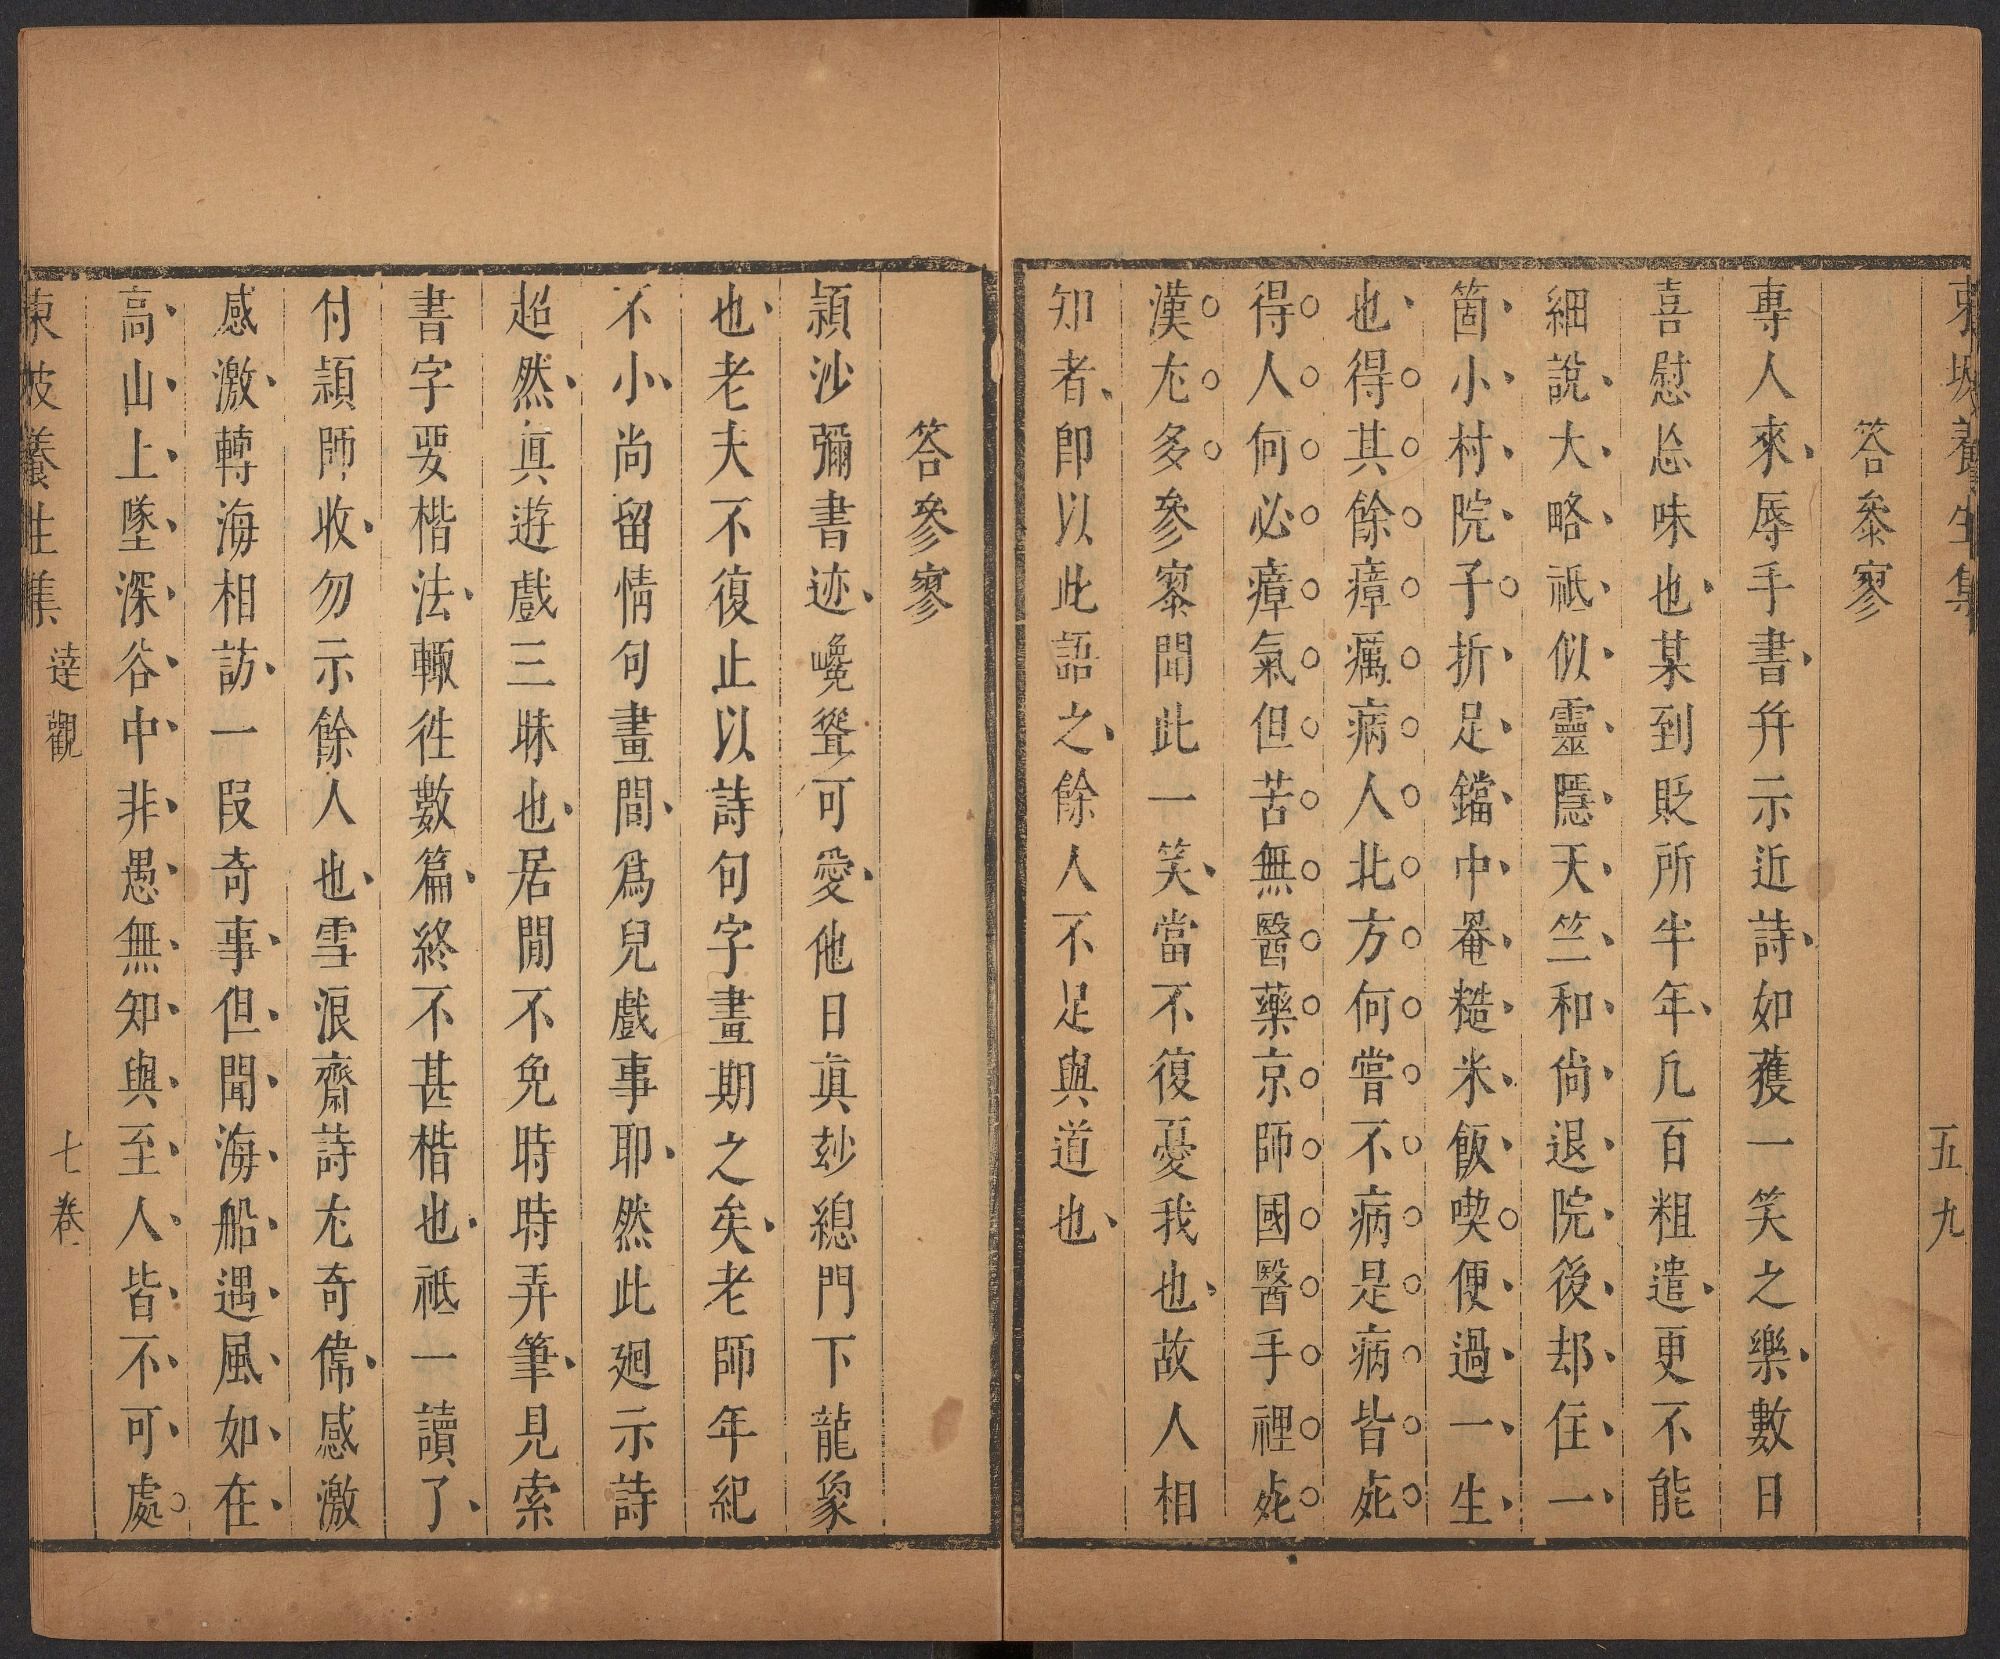 東坡養生集
五九
答參寥
專人來辱手書幷示近詩如獲一笑之樂數日
喜慰忘味也某到貶所半年凡百粗遣更不能
細說大略祗似靈隱天竺和尚退院後却住一
箇小村院子折足鐺中罨糙米飯喫便過一生
也得其餘瘴癘病人北方何嘗不病是病皆死
得人何必瘴氣但苦無醫藥京師國醫手裡死
漢尤多參寥聞此一笑當不復憂我也故人相
知者卽以此語之餘人不足與道也
答參寥
頴沙彌書迹巉聳可愛他日眞玅總門下龍象
也老夫不復止以詩句字畫期之矣老師年紀
不小尚留情句畫間爲兒戲事耶然此廻示詩
超然眞遊戲三昧也居閒不免時時弄筆見索
書字要楷法輒徃數篇終不甚楷也祗一讀了
付頴師收勿示餘人也雪浪齋詩尤奇偉感激
感激轉海相訪一段奇事但聞海船遇風如在
高山上墜深谷中非愚無知與至人皆不可處
東坡養生集
達觀
七卷